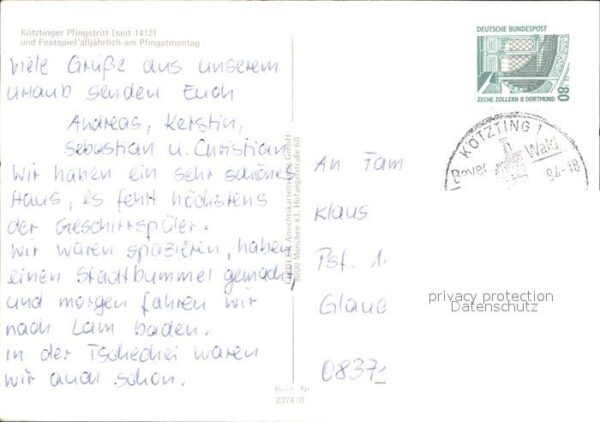 Kötztinger Pfingstritt (seit 1412)
und Festspiel alljährlich am Pfingstmontag
Viele Grüße aus unserem
Urlaub senden Euch
Andreas, Kerstin,
Sebastian u. Christian
Wir haben ein sehr schönes
Haus, es fehlt höchstens
der Geschirrspüler.
Wir waren spazieren, haben
einen Stadtbummel gemacht
und morgen fahren wir
nach Lam baden.
In der Tschechei waren
wir auch schon.
Ansichtskartenverlag GmbH
8000 München 83, Hofangerstraße 60
2374/0
DEUTSCHE BUNDESPOST
80
ZECHE ZOLLERN II DORTMUND
KÖTZTING 1
Bayer. Wald
94-18
An Fam
Klaus
Psf. 1
Glauc
0837
privacy protection
Datenschutz